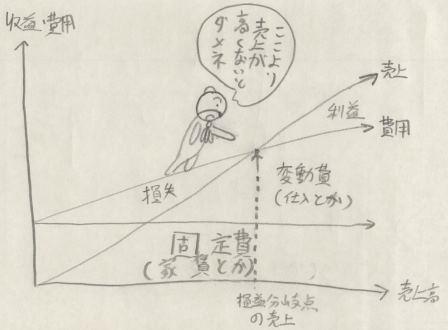 収益・費用
ここより
売上が
高くないと
ダメネ
売上
利益
費用
損失
変動費
(仕入とか)
固定費
(家賃とか)
売上高
損益分岐点
の売上